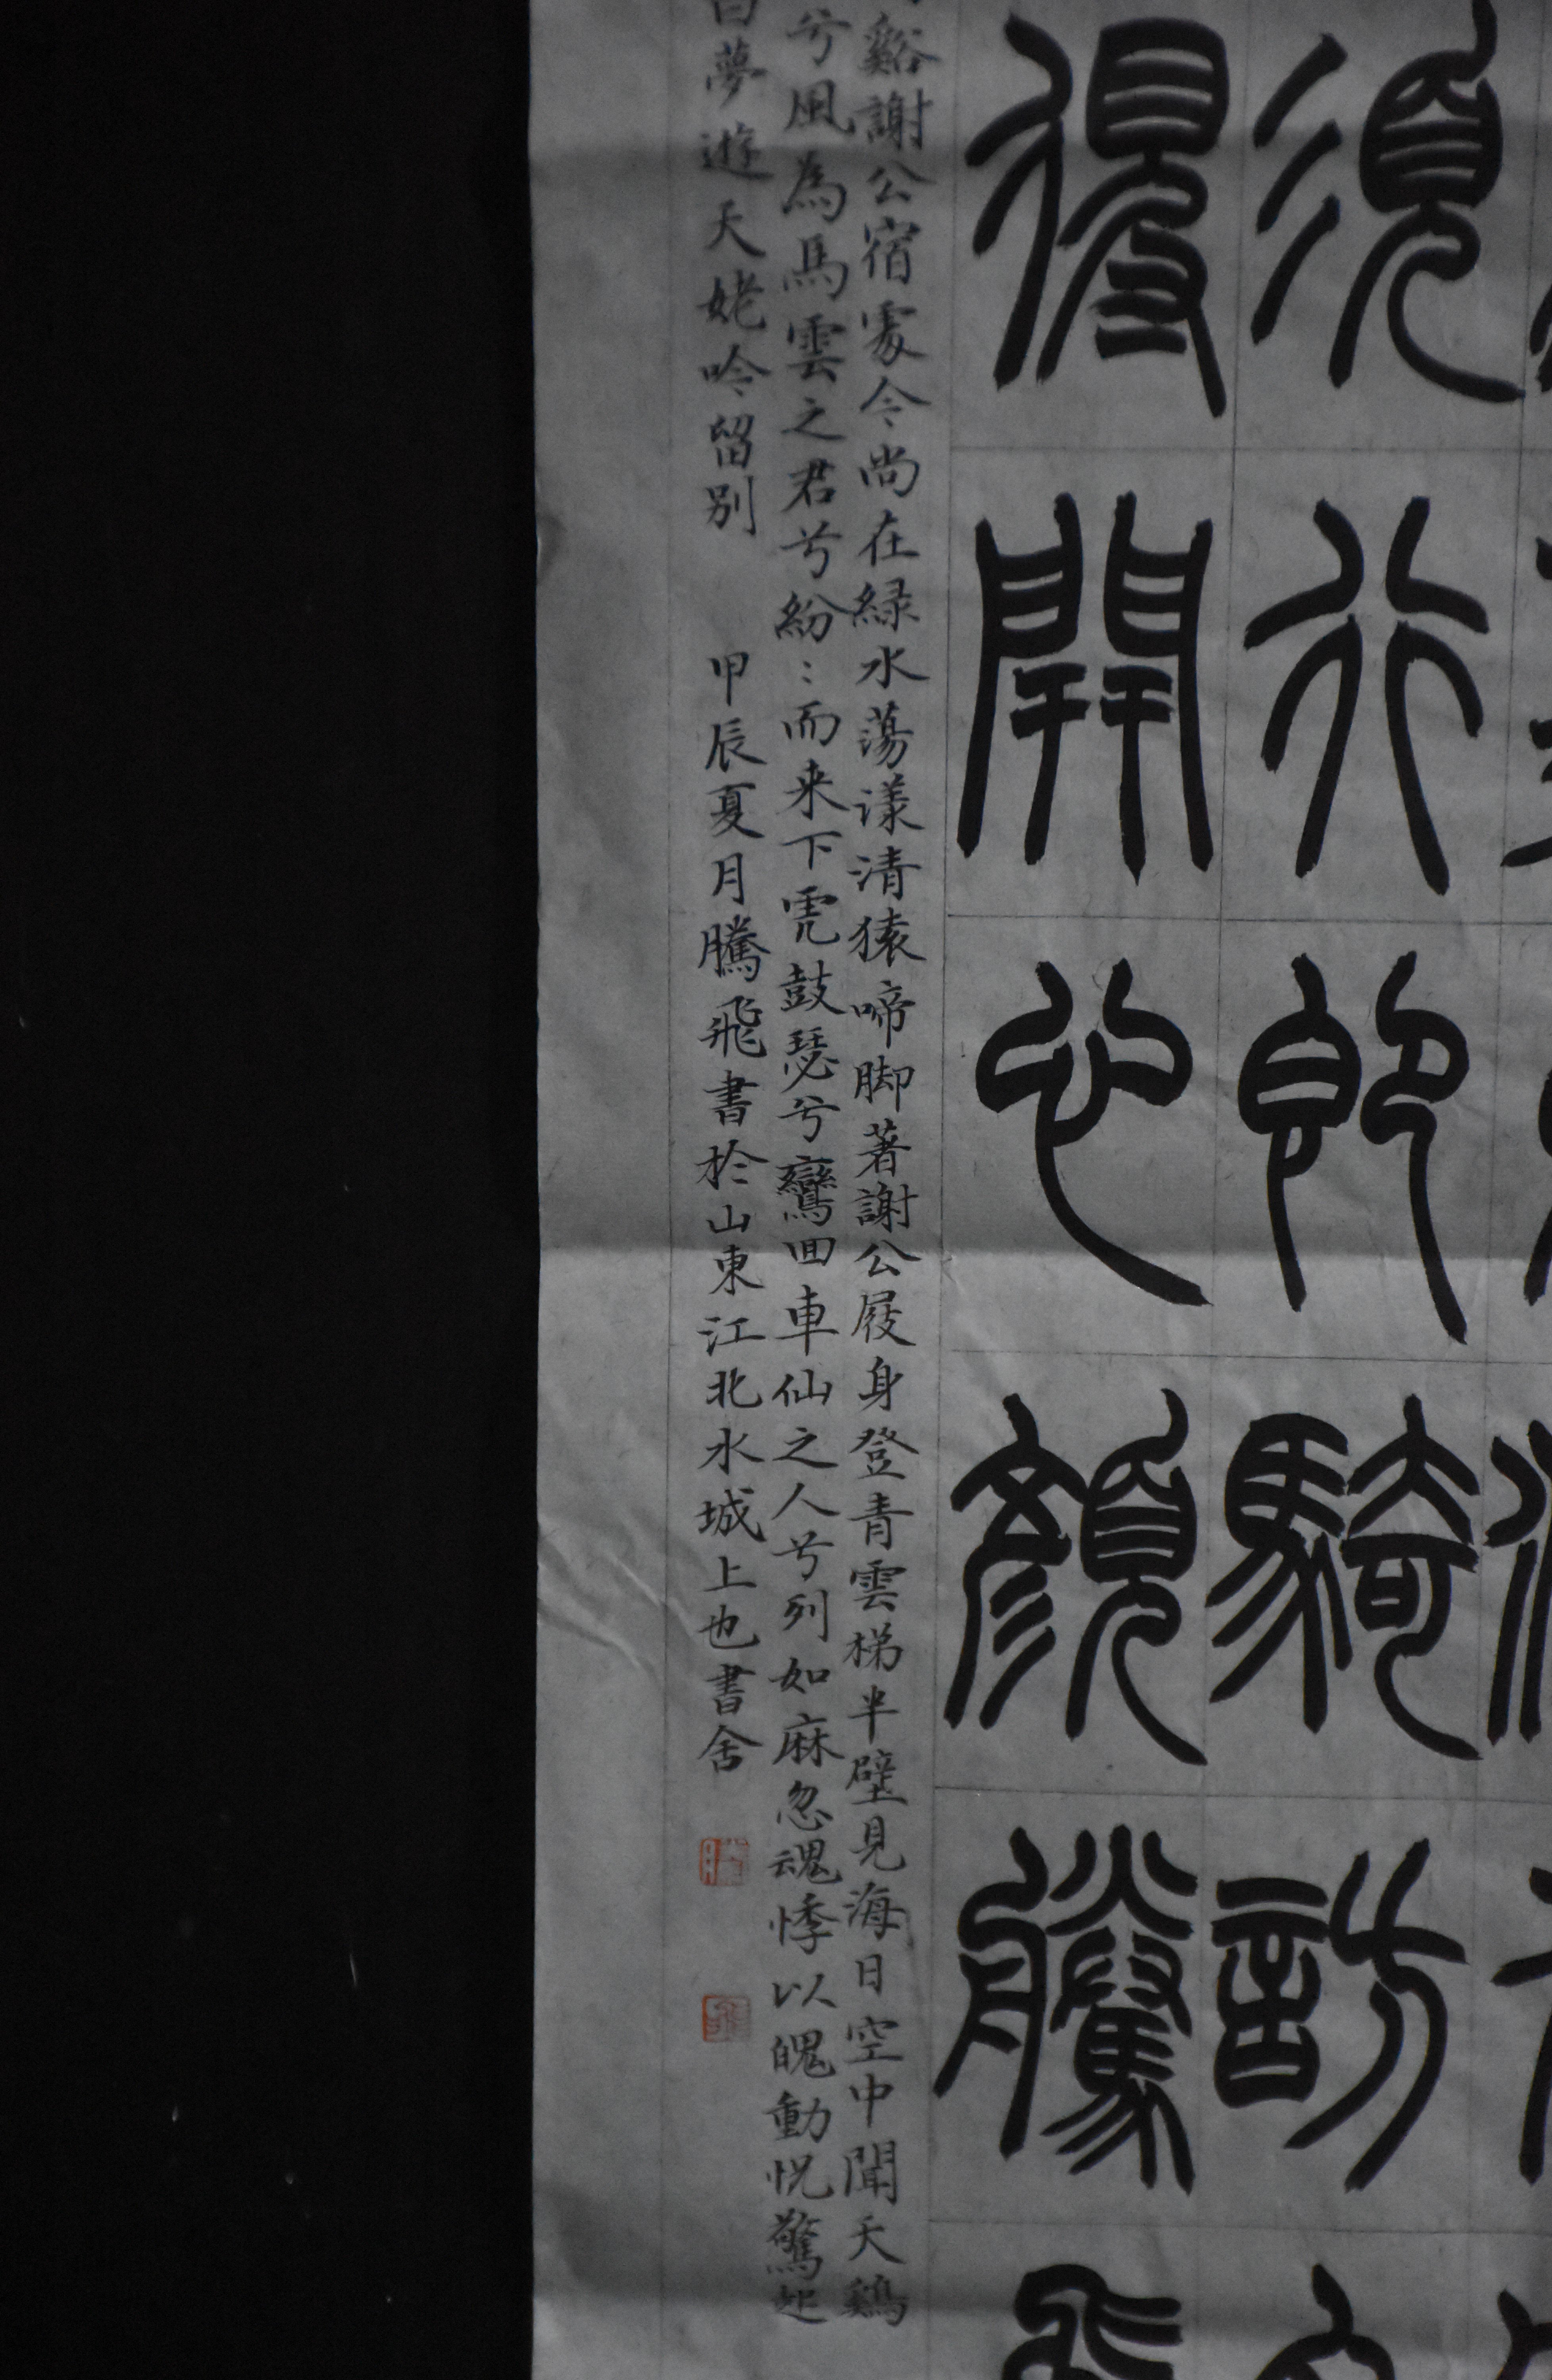 須行即騎訪
得開心顏騰飛
谿謝公宿處今尚在綠水蕩漾清猿啼脚著謝公屐身登青雲梯半壁見海日空中聞天鷄
兮風為馬雲之君兮紛:而来下虎鼓瑟兮鸞回車仙之人兮列如麻忽魂悸以魄動怳驚起
白夢遊天姥吟留別 甲辰夏月騰飛書於山東江北水城上也書舍